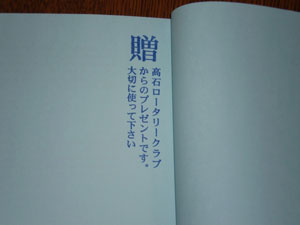 贈
高石ロータリークラブ
からのプレゼントです。
大切に使って下さい